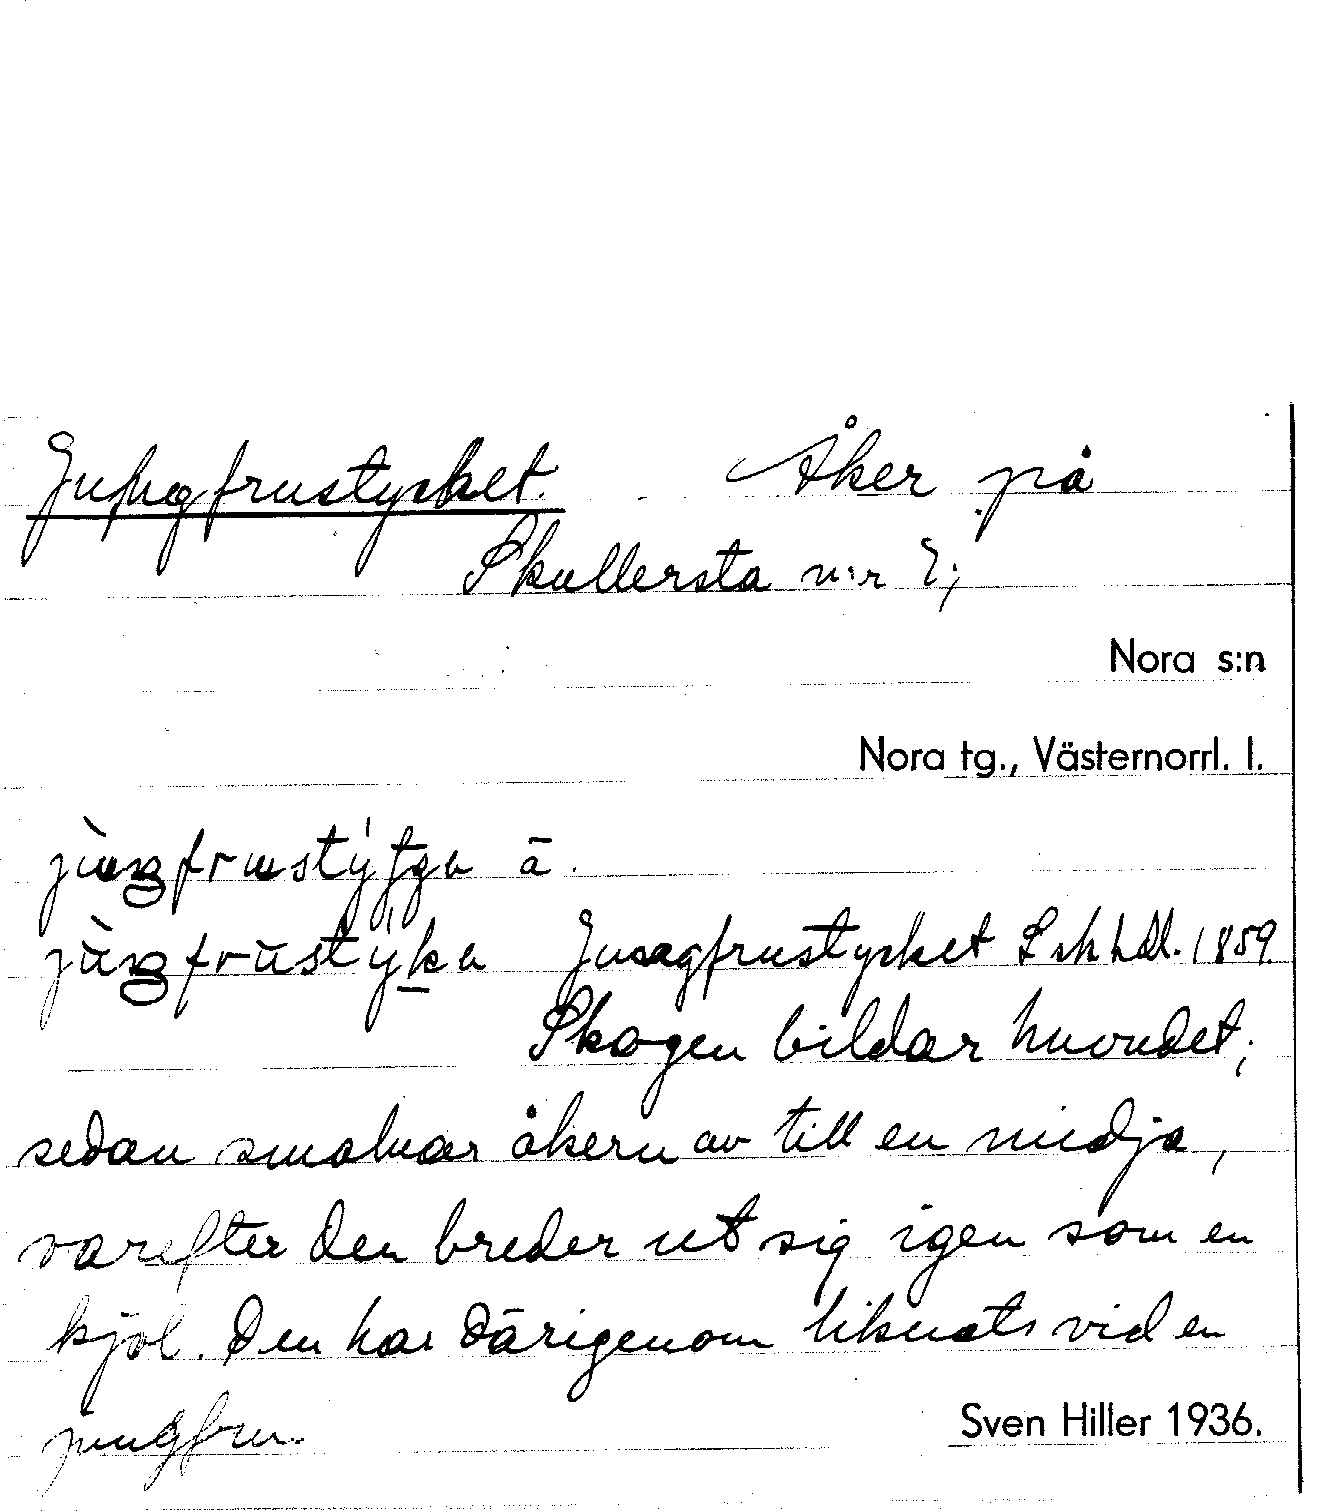 Jungfrustycket. Åker på
Skullersta n:r 2;
Nora s:n
Nora tg., Västernorrl. l.
ā.
Jungfrustycket Lskhdl. 1859
Skogen bildar huvudet;
sedan smalnar åkern av till en midja,
varefter den breder ut sig igen som en
kjol. Den har därigenom liknats vid en
jungfru.
Sven Hiller 1936.